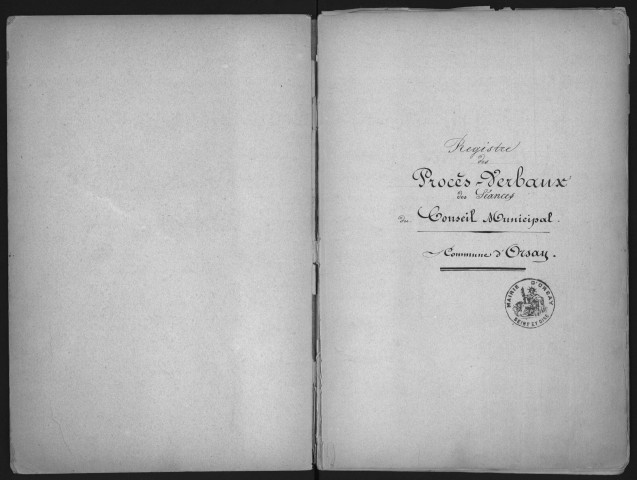 Registre
des
Procès-Verbaux
des Séances
du Conseil Municipal.
Commune d'Orsay.
MAIRIE D'ORSAY
SEINE ET OISE